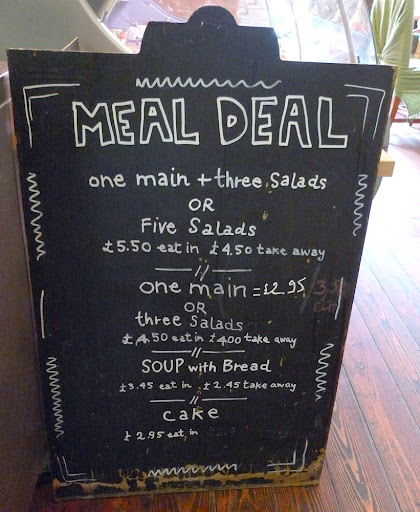 MEAL DEAL
one main + three Salads
OR
Five Salads
£5.50 eat in £4.50 take away
one main = £2.95
OR
three Salads
£4.50 eat in £4.00 take away
SOUP with Bread
£3.45 eat in £2.45 take away
cake
£2.95 eat in